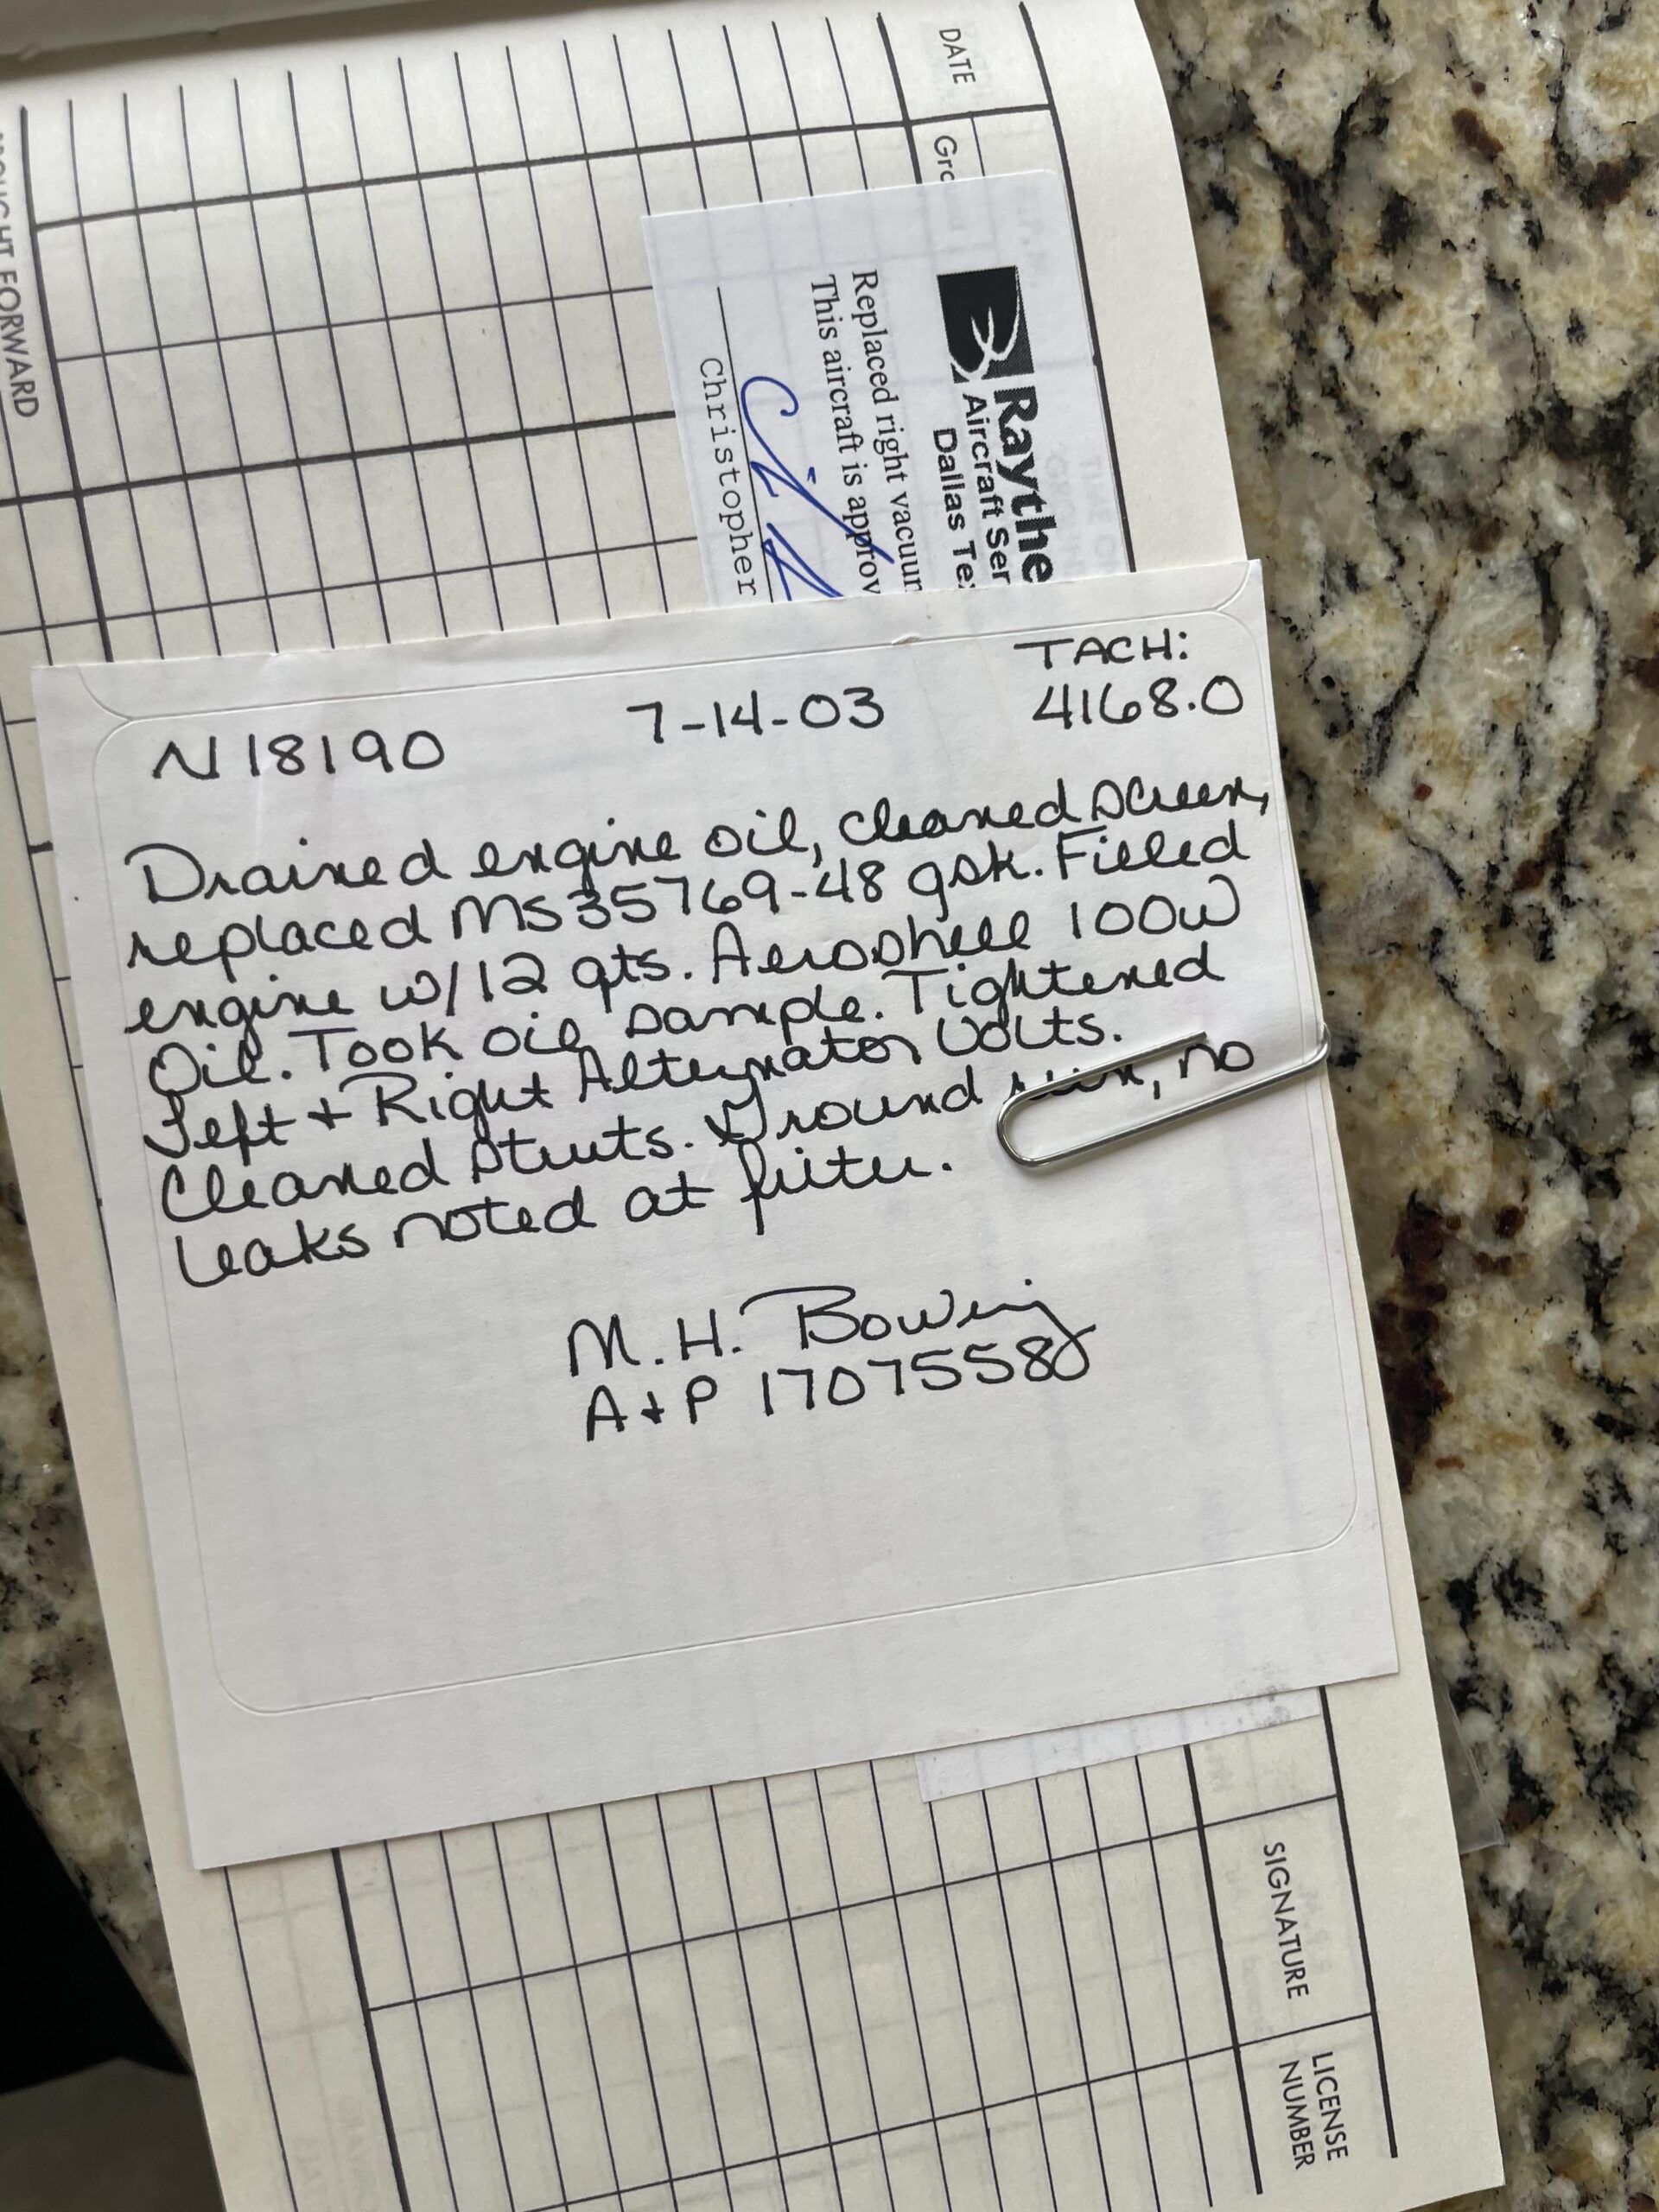 DATE
Gro
Raythe
Aircraft Ser
Dallas Te
Replaced right vacuum
This aircraft is approv
Christopher
FORWARD
N18190
7-14-03
TACH:
4168.0
Drained engine oil, cleaned screen,
replaced MS35769-48 gsk. Filled
engine w/12 qts. Aeroshell 100W
Oil. Took oil sample. Tightened
Left + Right Alternator Volts.
Cleaned struts. Ground run, no
leaks noted at filter.
M. H. Bowing
A+P 1707558
SIGNATURE
LICENSE
NUMBER